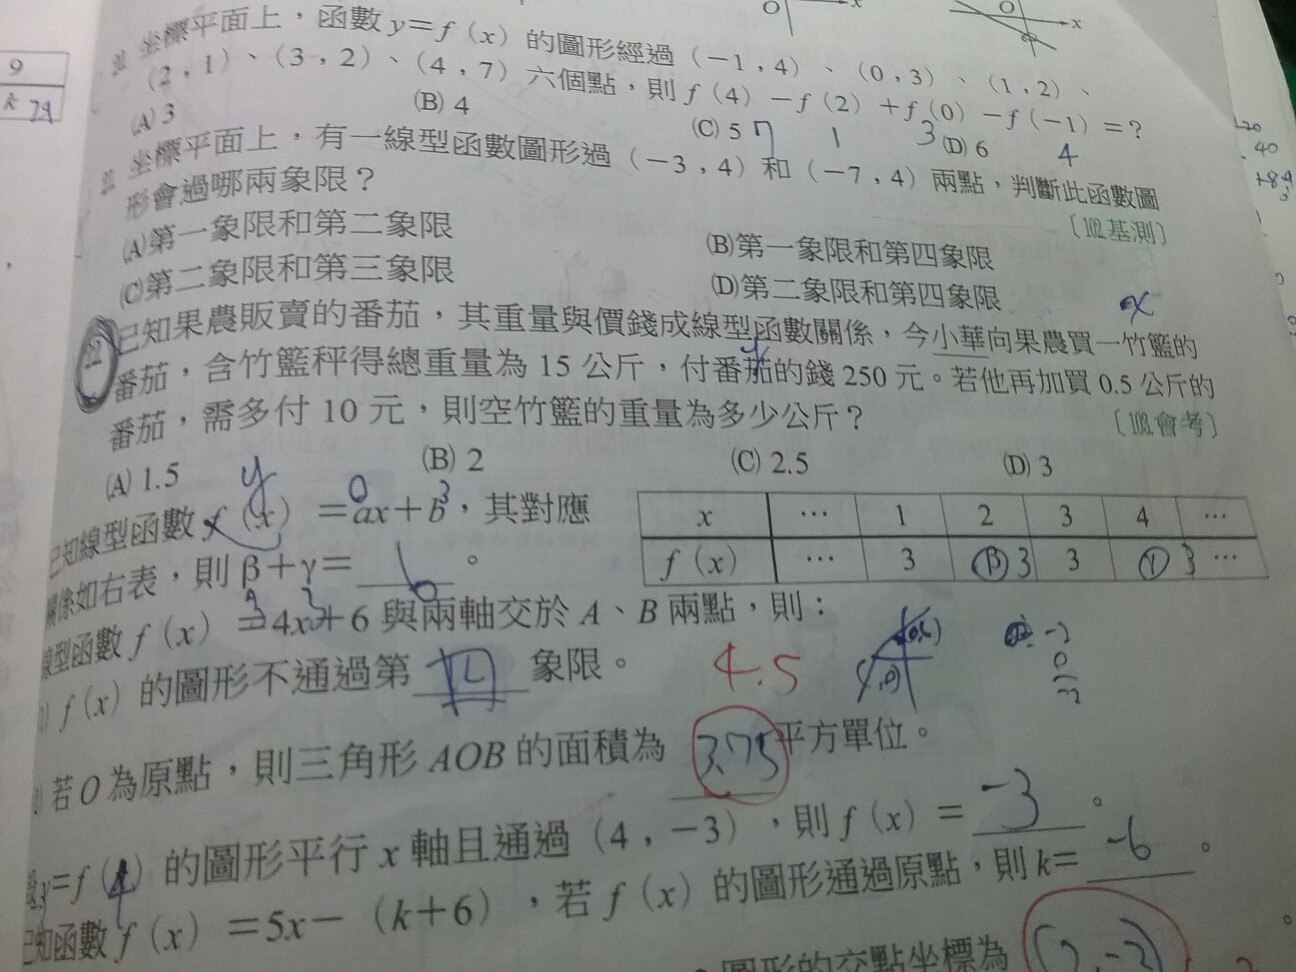 坐標平面上，函數 y＝f（x）的圖形經過（－1，4）、（0，3）、（1，2）、
（2，1）、（3，2）、（4，7）六個點，則 f（4）－f（2）＋f（0）－f（－1）＝？
(A) 3 (B) 4 (C) 5 (D) 6
7 1 3 4
坐標平面上，有一線型函數圖形過（－3，4）和（－7，4）兩點，判斷此函數圖
形會過哪兩象限？
〔102.基測〕
(A)第一象限和第二象限 (B)第一象限和第四象限
(C)第二象限和第三象限 (D)第二象限和第四象限
22 已知果農販賣的番茄，其重量與價錢成線型函數關係，今小華向果農買一竹籃的
番茄，含竹籃秤得總重量為 15 公斤，付番茄的錢 250 元。若他再加買 0.5 公斤的
番茄，需多付 10 元，則空竹籃的重量為多少公斤？ 〔103.會考〕
(A) 1.5 (B) 2 (C) 2.5 (D) 3
已知線型函數 f（x）＝ax＋b，其對應
關係如右表，則 β＋γ＝ 6 。
x … 1 2 3 4 …
f（x） … 3 β 3 3 γ 3 …
線型函數 f（x）＝4x＋6 與兩軸交於 A、B 兩點，則：
f（x）的圖形不通過第 四 象限。
4.5
若 O 為原點，則三角形 AOB 的面積為 3.75 平方單位。
y＝f（x）的圖形平行 x 軸且通過（4，－3），則 f（x）＝ －3 。
已知函數 f（x）＝5x－（k＋6），若 f（x）的圖形通過原點，則 k＝ －6 。
圖形的交點坐標為